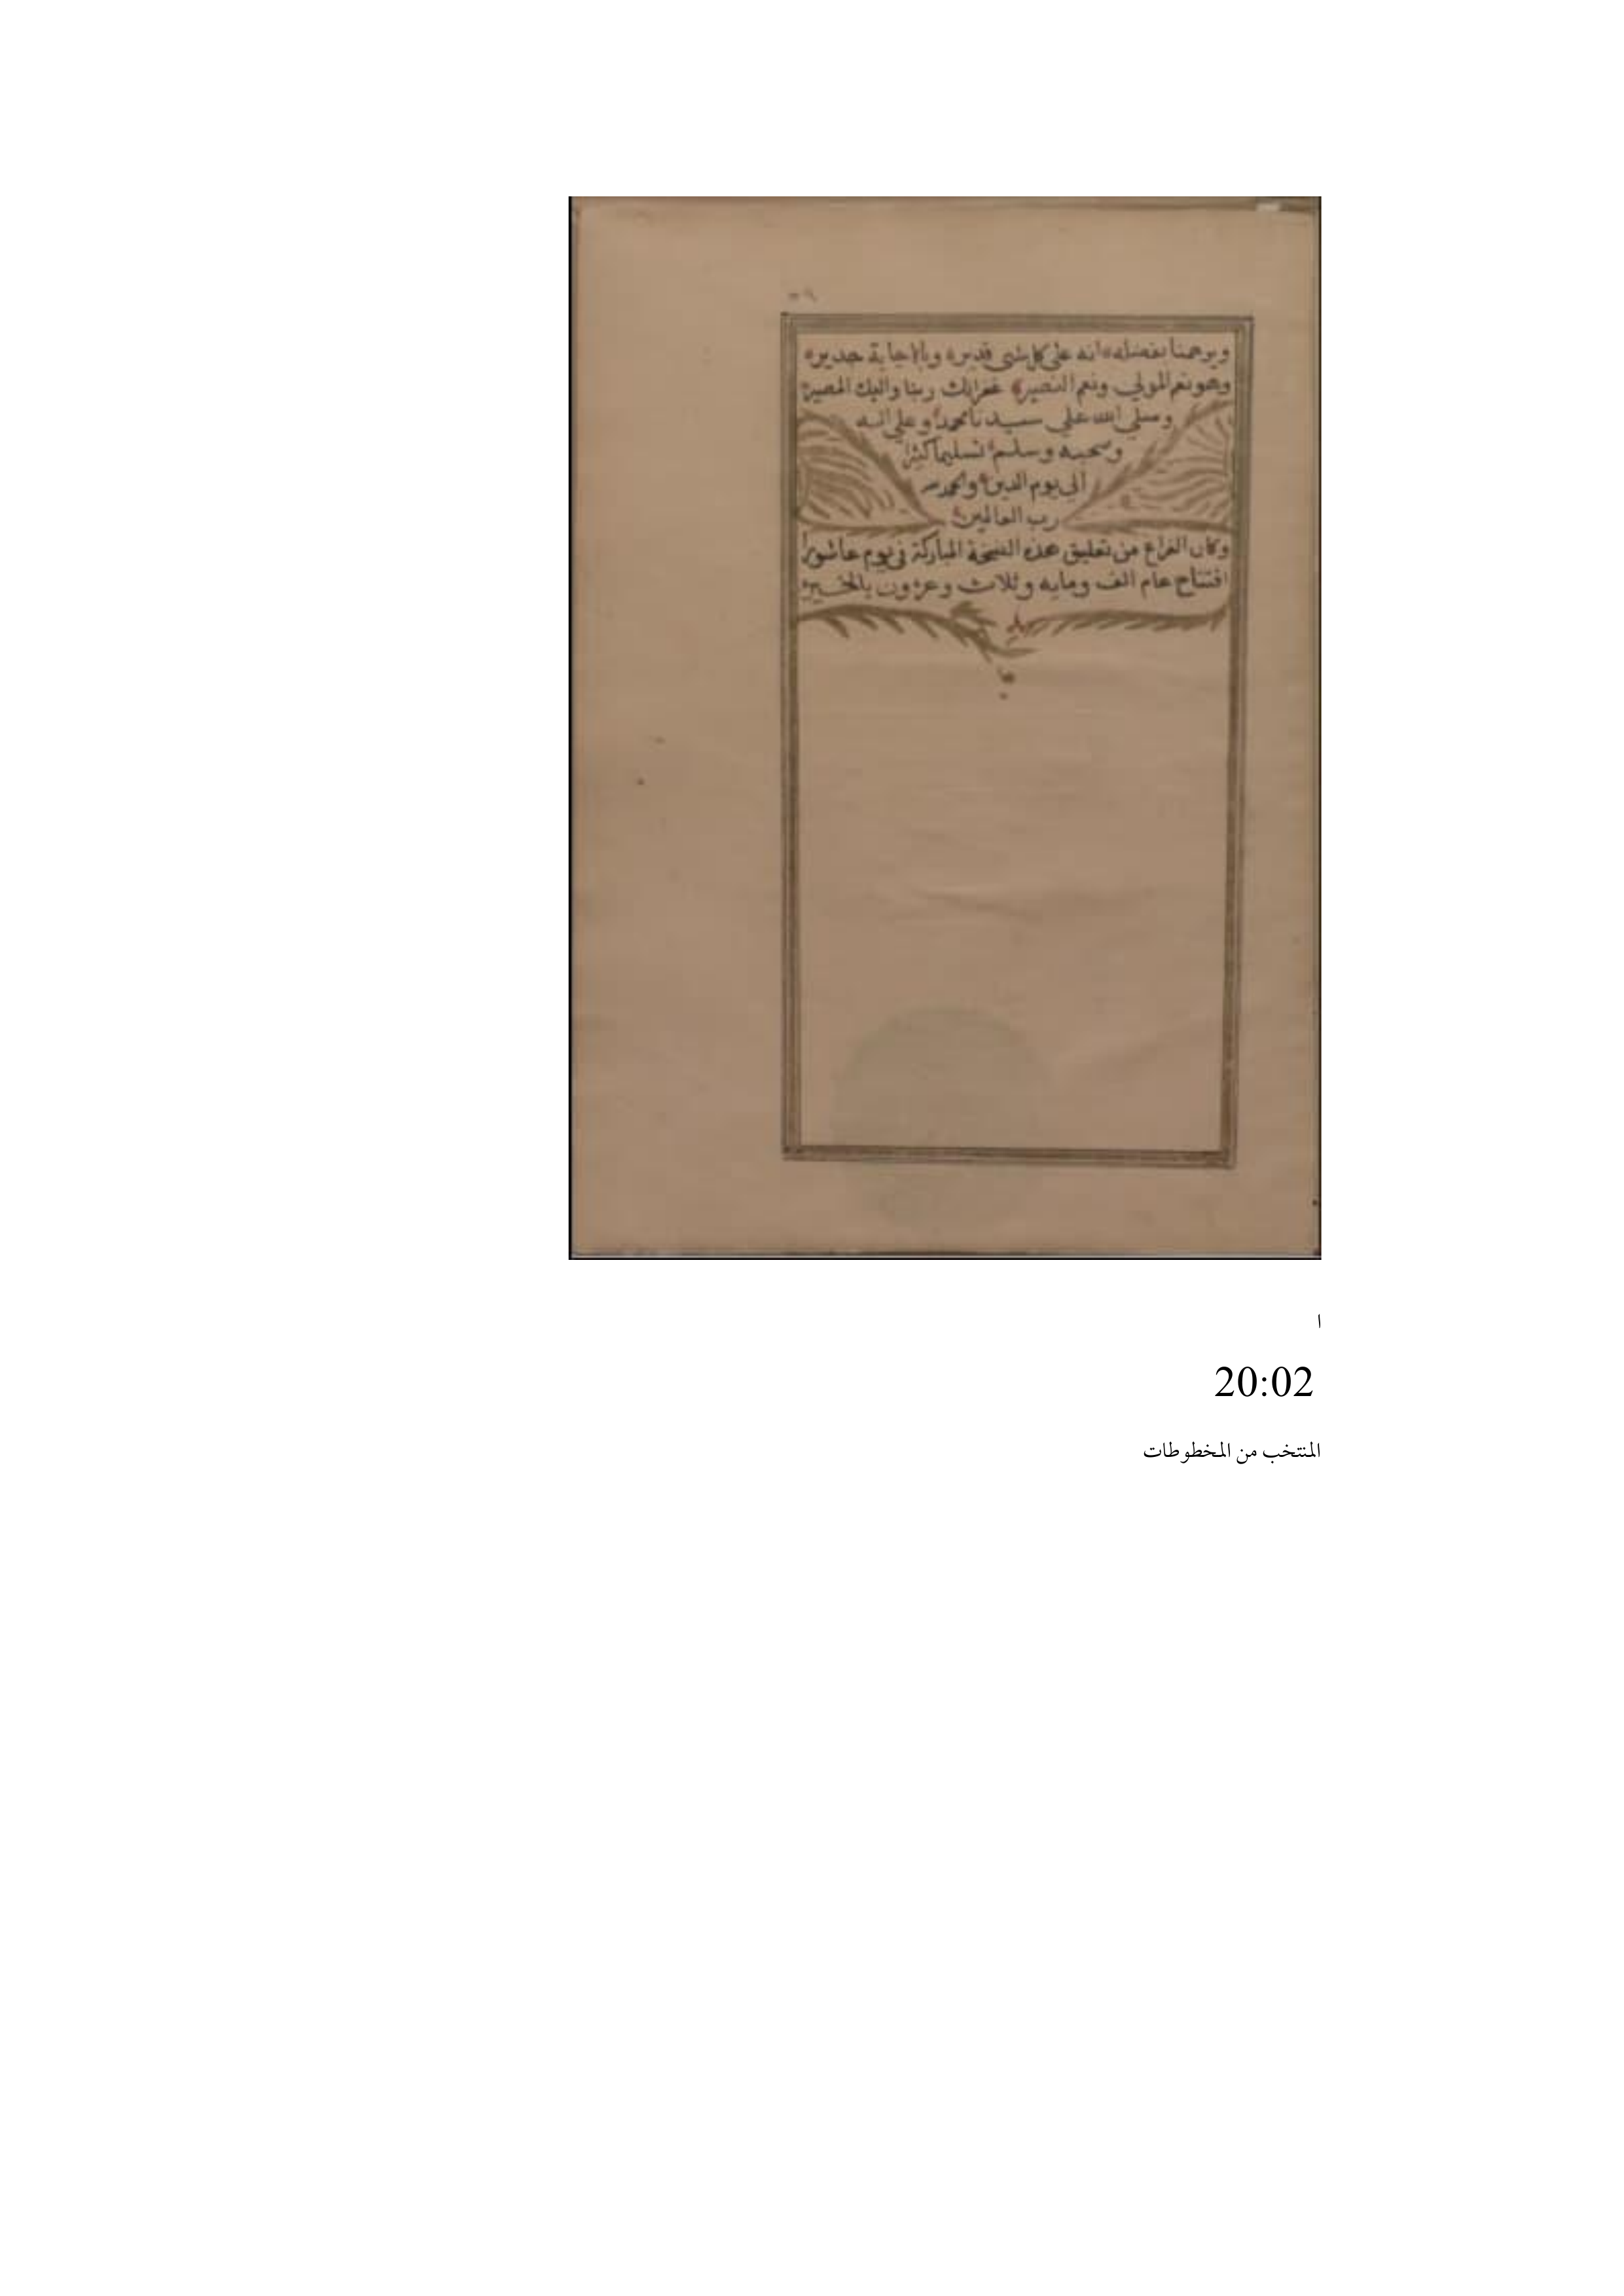 ويرحمنا بفضله انه علي كل شي قدير وبالاجابة جدير
وهو نعم المولي ونعم النصير غفرانك ربنا واليك المصير
وصلي الله علي سيدنا محمد وعلي اله
وصحبه وسلم تسليما كثيرا
الي يوم الدين والحمد لله
رب العالمين
وكان الفراغ من تعليق هذه النسخة المباركة في يوم عاشورا
افتتاح عام الف ومايه وثلاث وعشرون بالخير
ا
20:02
المنتخب من المخطوطات